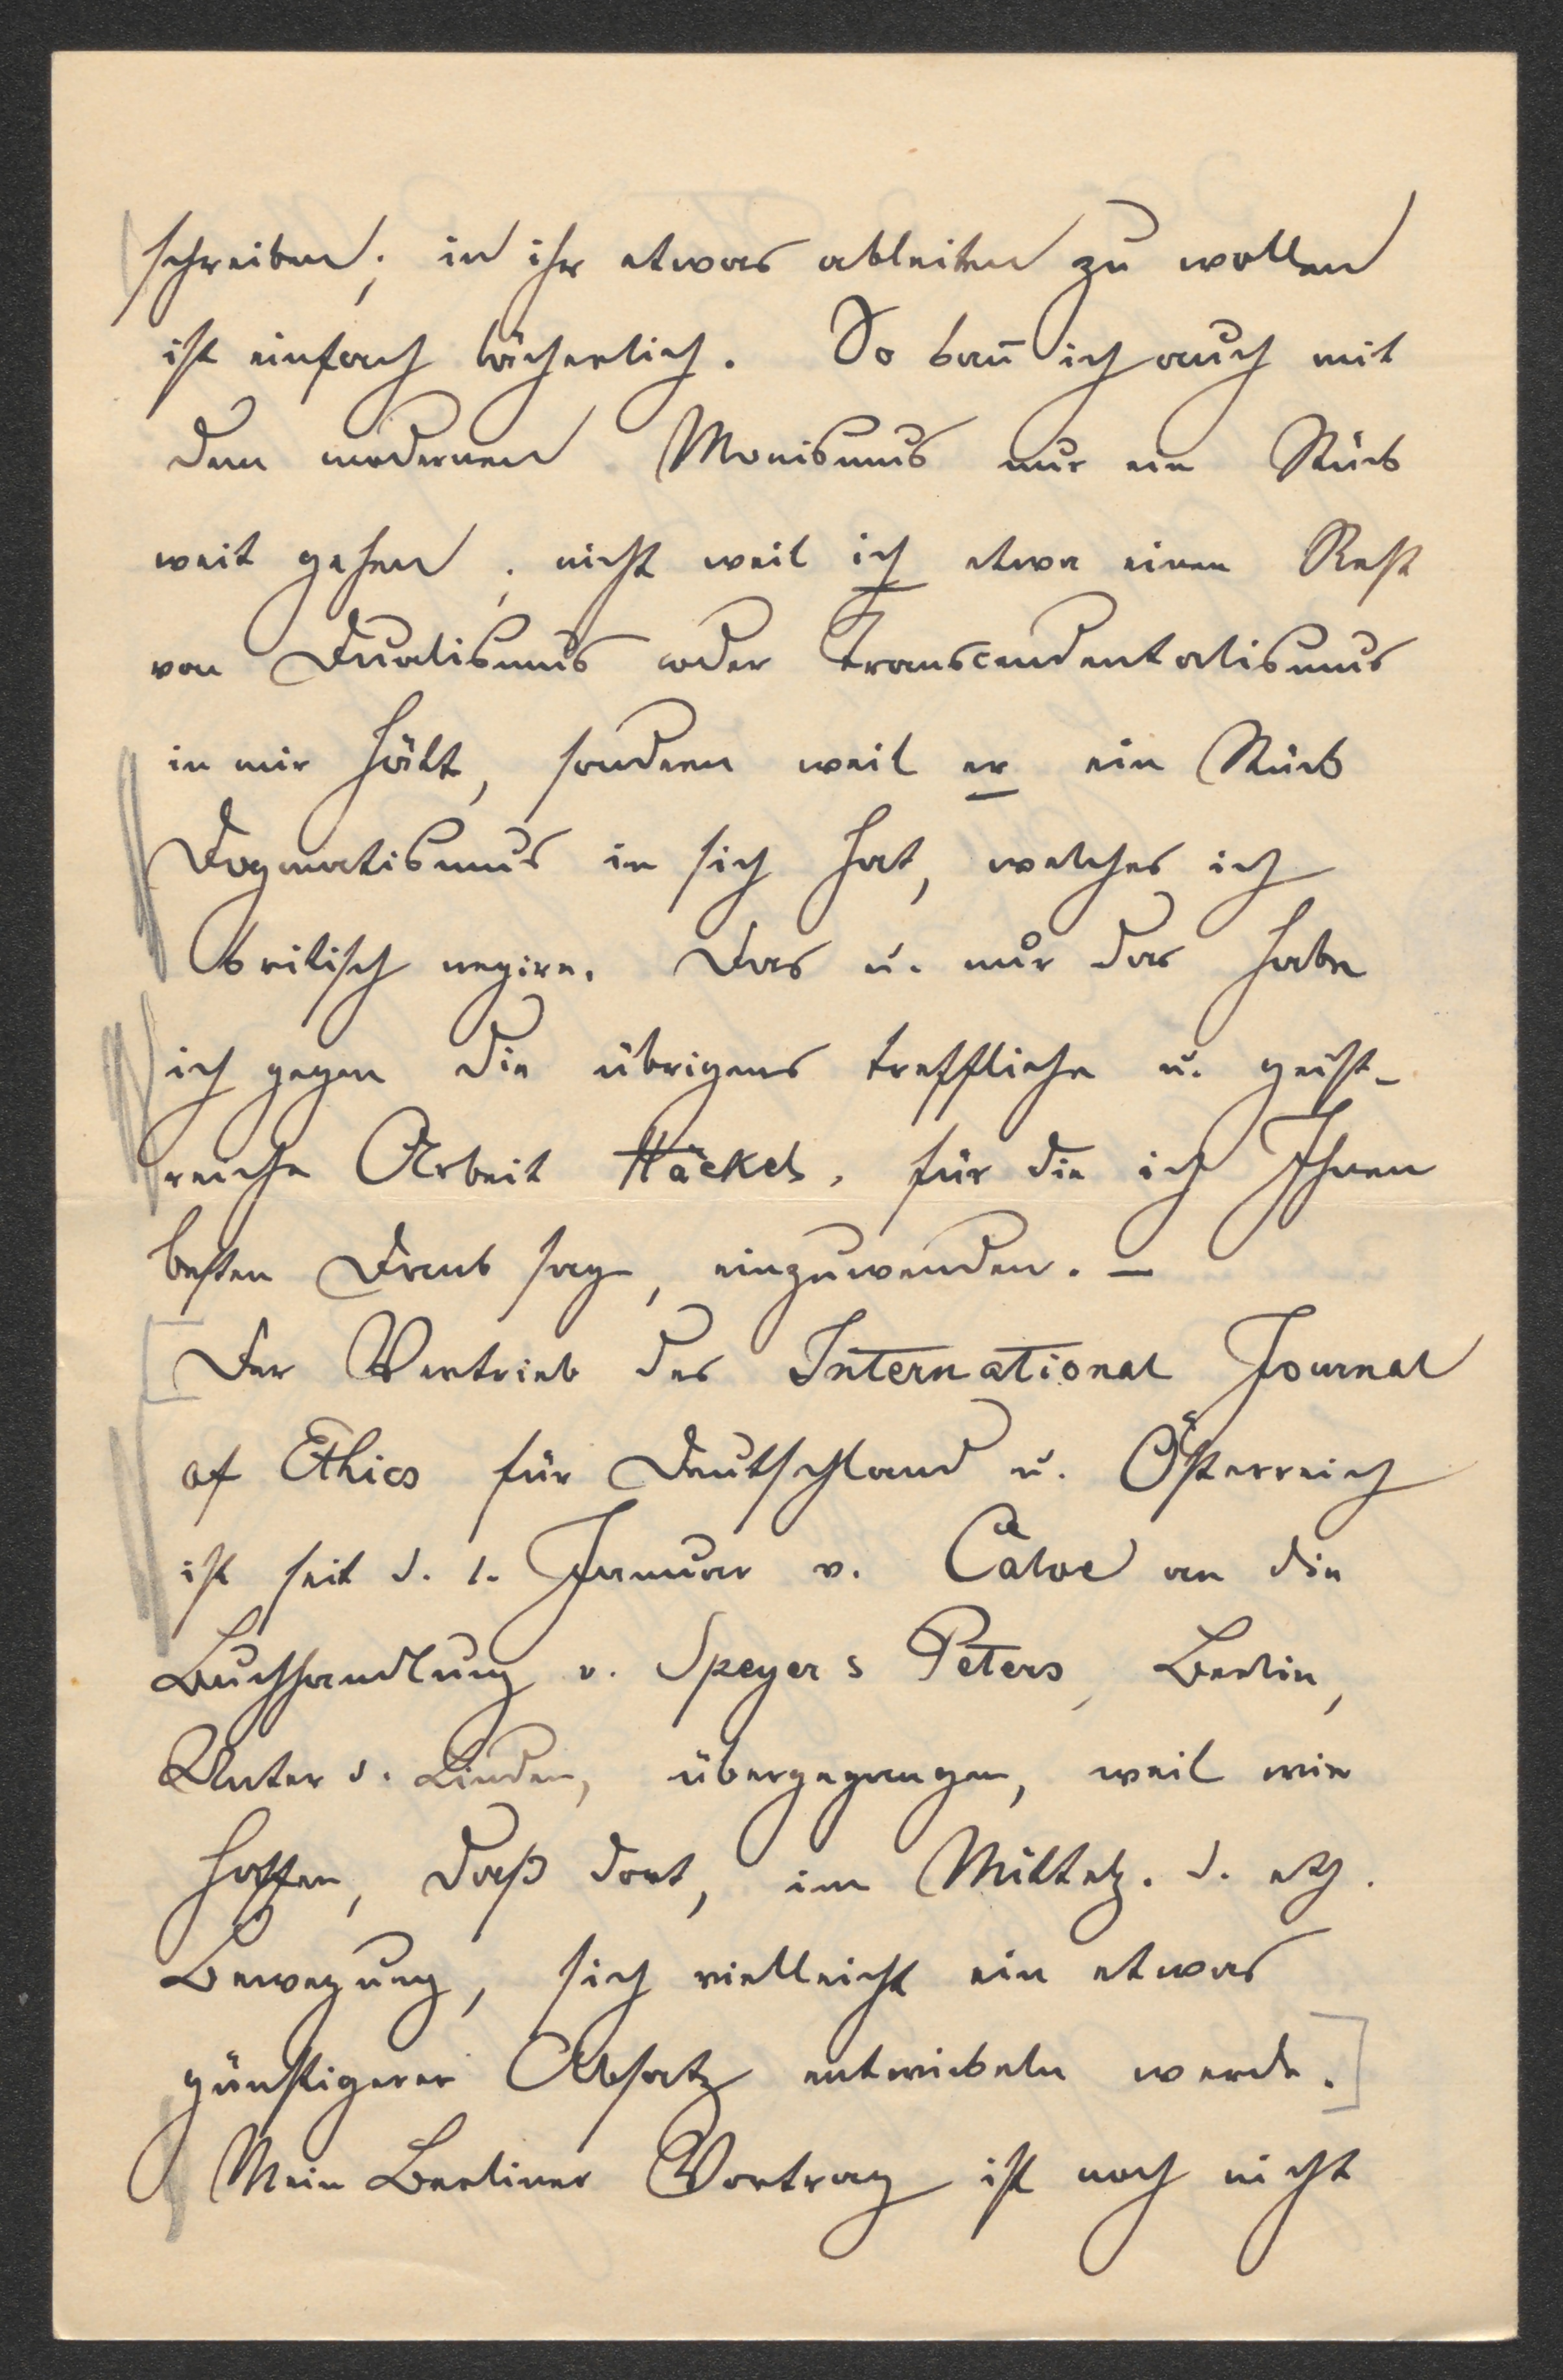 schreiben; in ihr etwas ableiten zu wollen
ist einfach lächerlich. So kan̄ ich auch mit
dem modernen Monismus nur ein Stück
weit gehen, nicht weil ich etwa einen Rest
von Dualismus oder Transcendentalismus
in mir hätt, sondern weil er ein Stück
Dogmatismus in sich hat, welches ich
kritisch negire. Das u. nur das habe
ich gegen die übrigens treffliche u. geist-
reiche Arbeit Häckels, für die ich Ihnen
besten Dank sage, einzuwenden. —
Der Vertrieb des International Journal
of Ethics für Deutschland u. Österreich
ist seit d. 1. Januar v. Calve an die
Buchhandlung v. Speyer & Peters, Berlin,
Unter d. Linden, übergegangen, weil wir
hoffen, daß dort, im Mittelp. d. eth.
Bewegung, sich vielleicht ein etwas
günstigerer Absatz entwickeln werde.
Mein Berliner Vortrag ist noch nicht